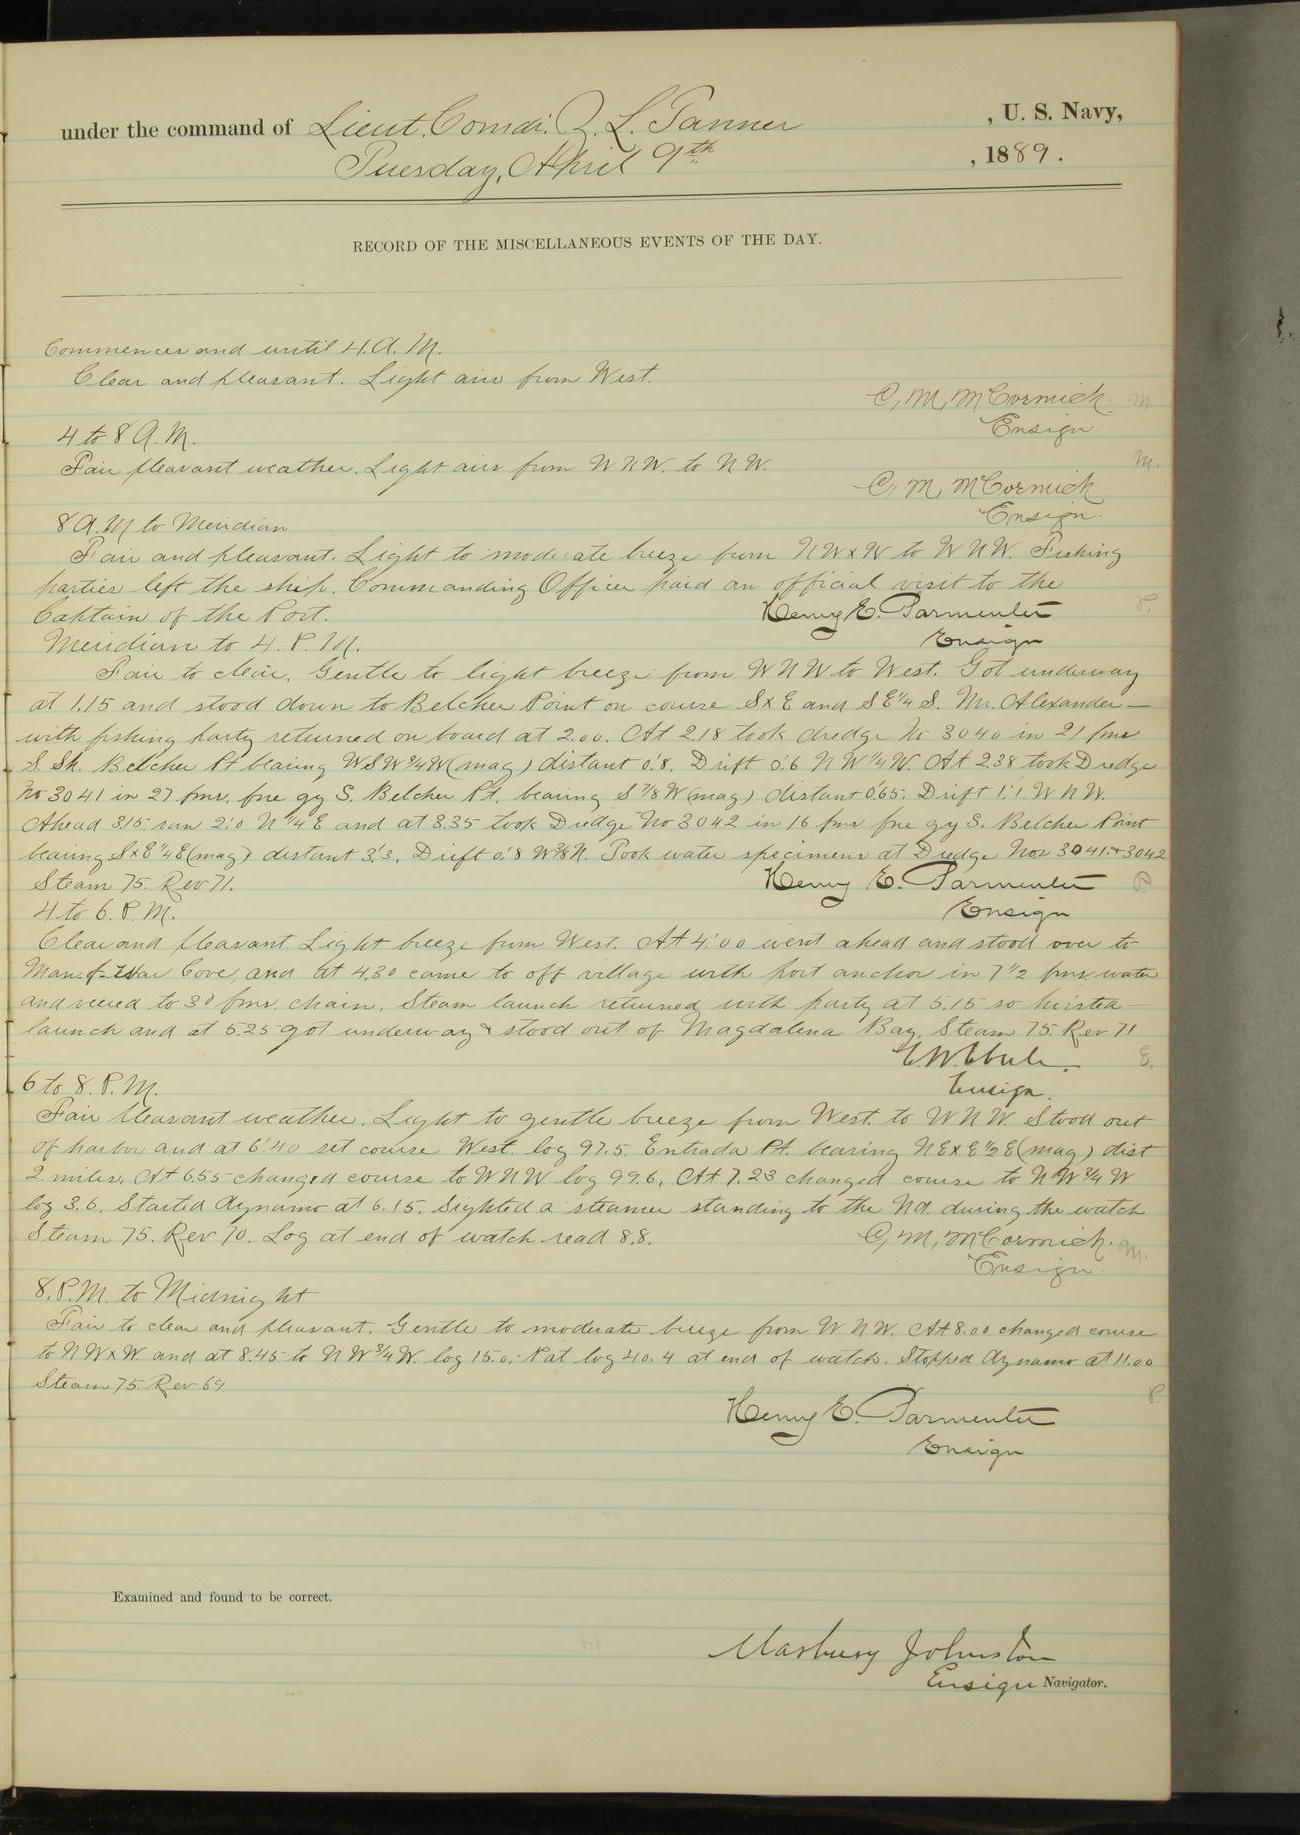 under the command of Lieut. Comdr. Z. L. Tanner , U. S. Navy,
Tuesday, April 9th , 1889.
RECORD OF THE MISCELLANEOUS EVENTS OF THE DAY.
Commences and until 4. A. M.
Clear and pleasant. Light airs from West.
C. M. McCormick. M.
Ensign.
4 to 8 A. M.
Fair pleasant weather. Light airs from W N W. to N W. M.
C. M. McCormick
Ensign.
8 A. M to Meridian
Fair and pleasant. Light to moderate breeze from N W x W to W N W. Fishing
parties left the ship. Commanding Officer paid an official visit to the
Captain of the Port. Henry E. Parmenter P.
Meridian to 4. P. M. Ensign
Fair to clear. Gentle to light breeze from W N W to West. Got underway
at 1.15 and stood down to Belcher Point on course S x E and S E 1/4 S. Mr. Alexander —
with fishing party returned on board at 2.00. At 2.18 took dredge No 3040 in 21 fms
S. Sh. Belcher Pt bearing W S W 3/4 W (mag) distant 0'.8. Drift 0'.6 N W 1/4 W. At 2.38 took Dredge
No 3041 in 27 fms. fne gy S. Belcher Pt. bearing S 7/8 W (mag) distant 0'.65. Drift 1'.1 W N W.
Ahead 3.15. ran 2'.0 N 1/4 E and at 3.35 took Dredge No 3042 in 16 fms fne gy S. Belcher Point
bearing S x E 1/4 E (mag) distant 3'.3. Drift 0'.8 W 3/8 N. Took water specimens at Dredge Nos 3041. & 3042
Steam 75. Rev 71. Henry E. Parmenter P.
4 to 6. P. M. Ensign
Clear and pleasant. Light breeze from West. At 4.00 went ahead and stood over to
Man-of-War Cove, and at 4.30 came to off village with port anchor in 7 1/2 fms. water
and veered to 30 fms. chain. Steam launch returned with party at 5.15 so hoisted
launch and at 5.25 got underway & stood out of Magdalena Bay. Steam 75. Rev 71
E. W. Eberle E.
Ensign.
6 to 8. P. M.
Fair pleasant weather. Light to gentle breeze from West. to W N W. Stood out
of harbor and at 6.40 set course West. log 97.5. Entrada Pt. bearing N E x E 1/2 E (mag) dist
2 miles. At 6.55 changed course to W N W log 99.6. At 7.23 changed course to N W 3/4 W
log 3.6. Started dynamo at 6.15. Sighted a steamer standing to the Nd. during the watch
Steam 75. Rev 70. Log at end of watch read 8.8. C. M. McCormick. M.
Ensign
8. P. M. to Midnight
Fair to clear and pleasant. Gentle to moderate breeze from W N W. At 8.00 changed course
to N W x W and at 8.45 to N W 3/4 W. log 15.0. Pat log 40.4 at end of watch. Stopped dynamo at 11.00
Steam 75. Rev 69. P.
Henry E. Parmenter
Ensign
Examined and found to be correct.
Marbury Johnston
Ensign Navigator.